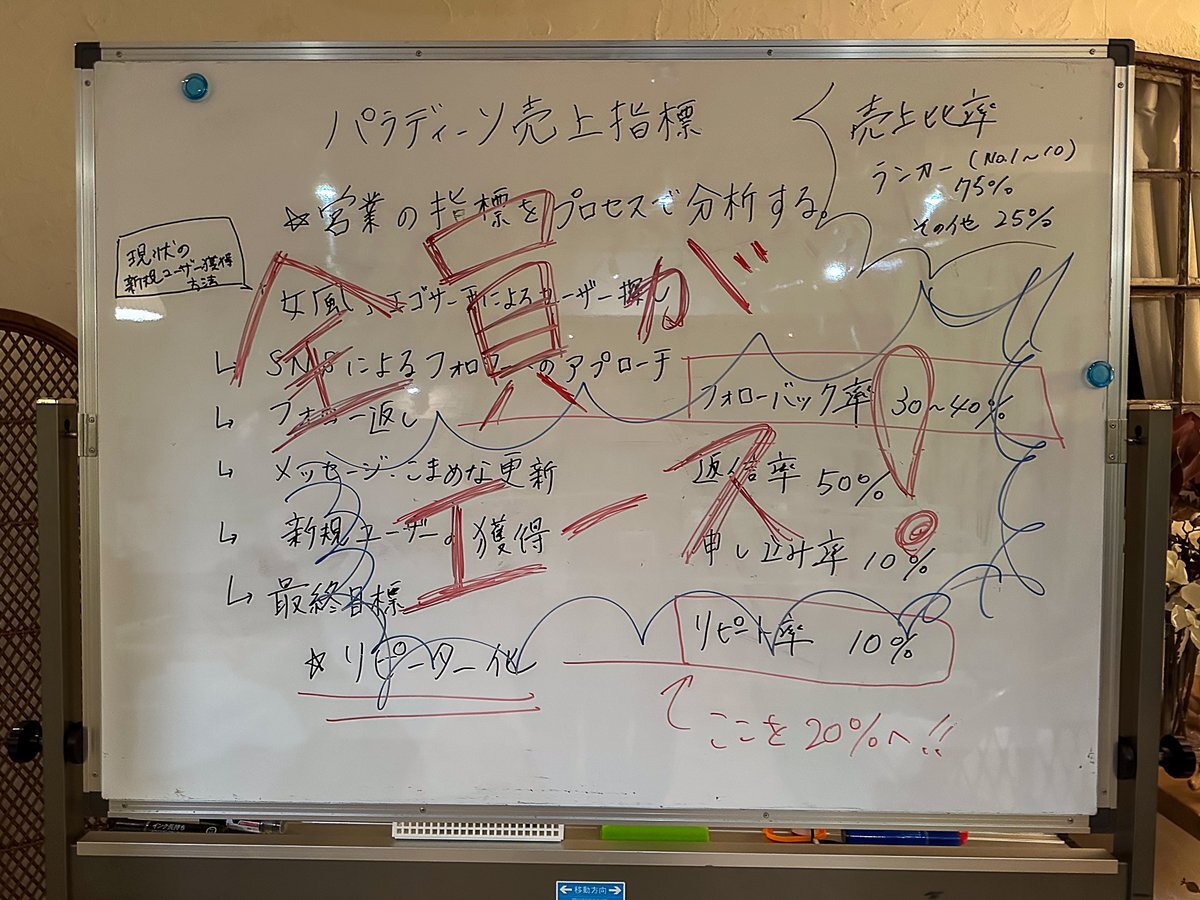 パラディーソ売上指標
売上比率
ランカー (No.1〜10)
75%
その他 25%
☆営業の指標をプロセスで分析する。
現状の
新規ユーザー獲得
方法
女風、エゴサーチによるユーザー探し
↳ SNSによるフォロワーのアプローチ
フォローバック率 30〜40%
↳ フォロー返し
↳ メッセージ・こまめな更新
返信率 50%
↳ 新規ユーザーの獲得
申し込み率 10%
↳ 最終目標
☆リピーター化
リピート率 10%
ここを20%へ!!
全員が
エース!
インク長持ち
←移動方向→